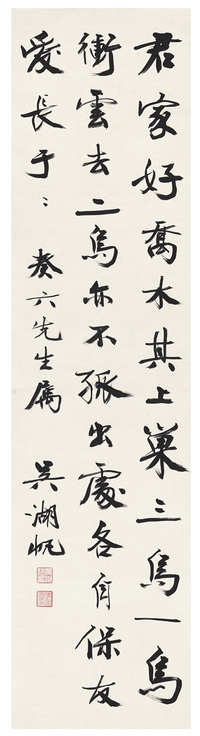 君家好喬木其上巢三烏一烏
衝雲去二烏亦不孤出處各自保友
愛長于〻 癸六先生屬 吳湖帆